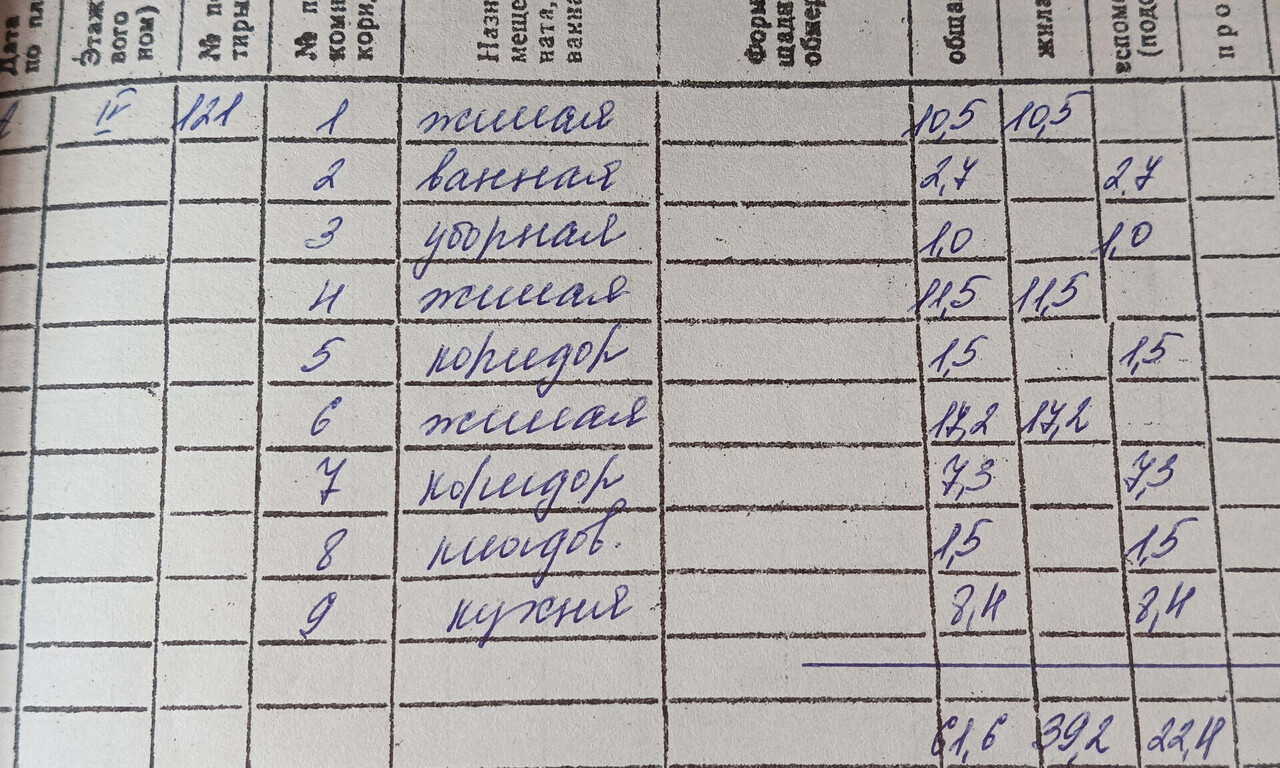 Дата по пл
Этаж вого ном)
№ по тиры
№ п комн кори
Назн меще ната, ванна
Форм щади обмер
обща
жила
вспом (подс
про
IV 121 1 жилая 10,5 10,5
2 ванная 2,7 2,7
3 уборная 1,0 1,0
4 жилая 11,5 11,5
5 коридор 1,5 1,5
6 жилая 17,2 17,2
7 коридор 7,3 7,3
8 кладов. 1,5 1,5
9 кухня 8,4 8,4
61,6 39,2 22,4